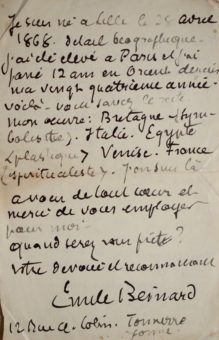 Je suis né à Lille le 28 avril
1868. Détail biographique.
j'ai été élevé à Paris et j'ai
passé 12 ans en Orient depuis
ma vingt quatrième année.
voilà. vous savez le reste
mon œuvre: Bretagne (Sym-
boliste). Italie. Égypte
(plastique) Venise. France
(spiritualiste).
à vous de tout cœur et
merci de vous employer
pour moi.
quand serez vous prêts?
votre dévoué et reconnaissant
Emile Bernard
12 Rue C. Colin. Tonnerre
Yonne.